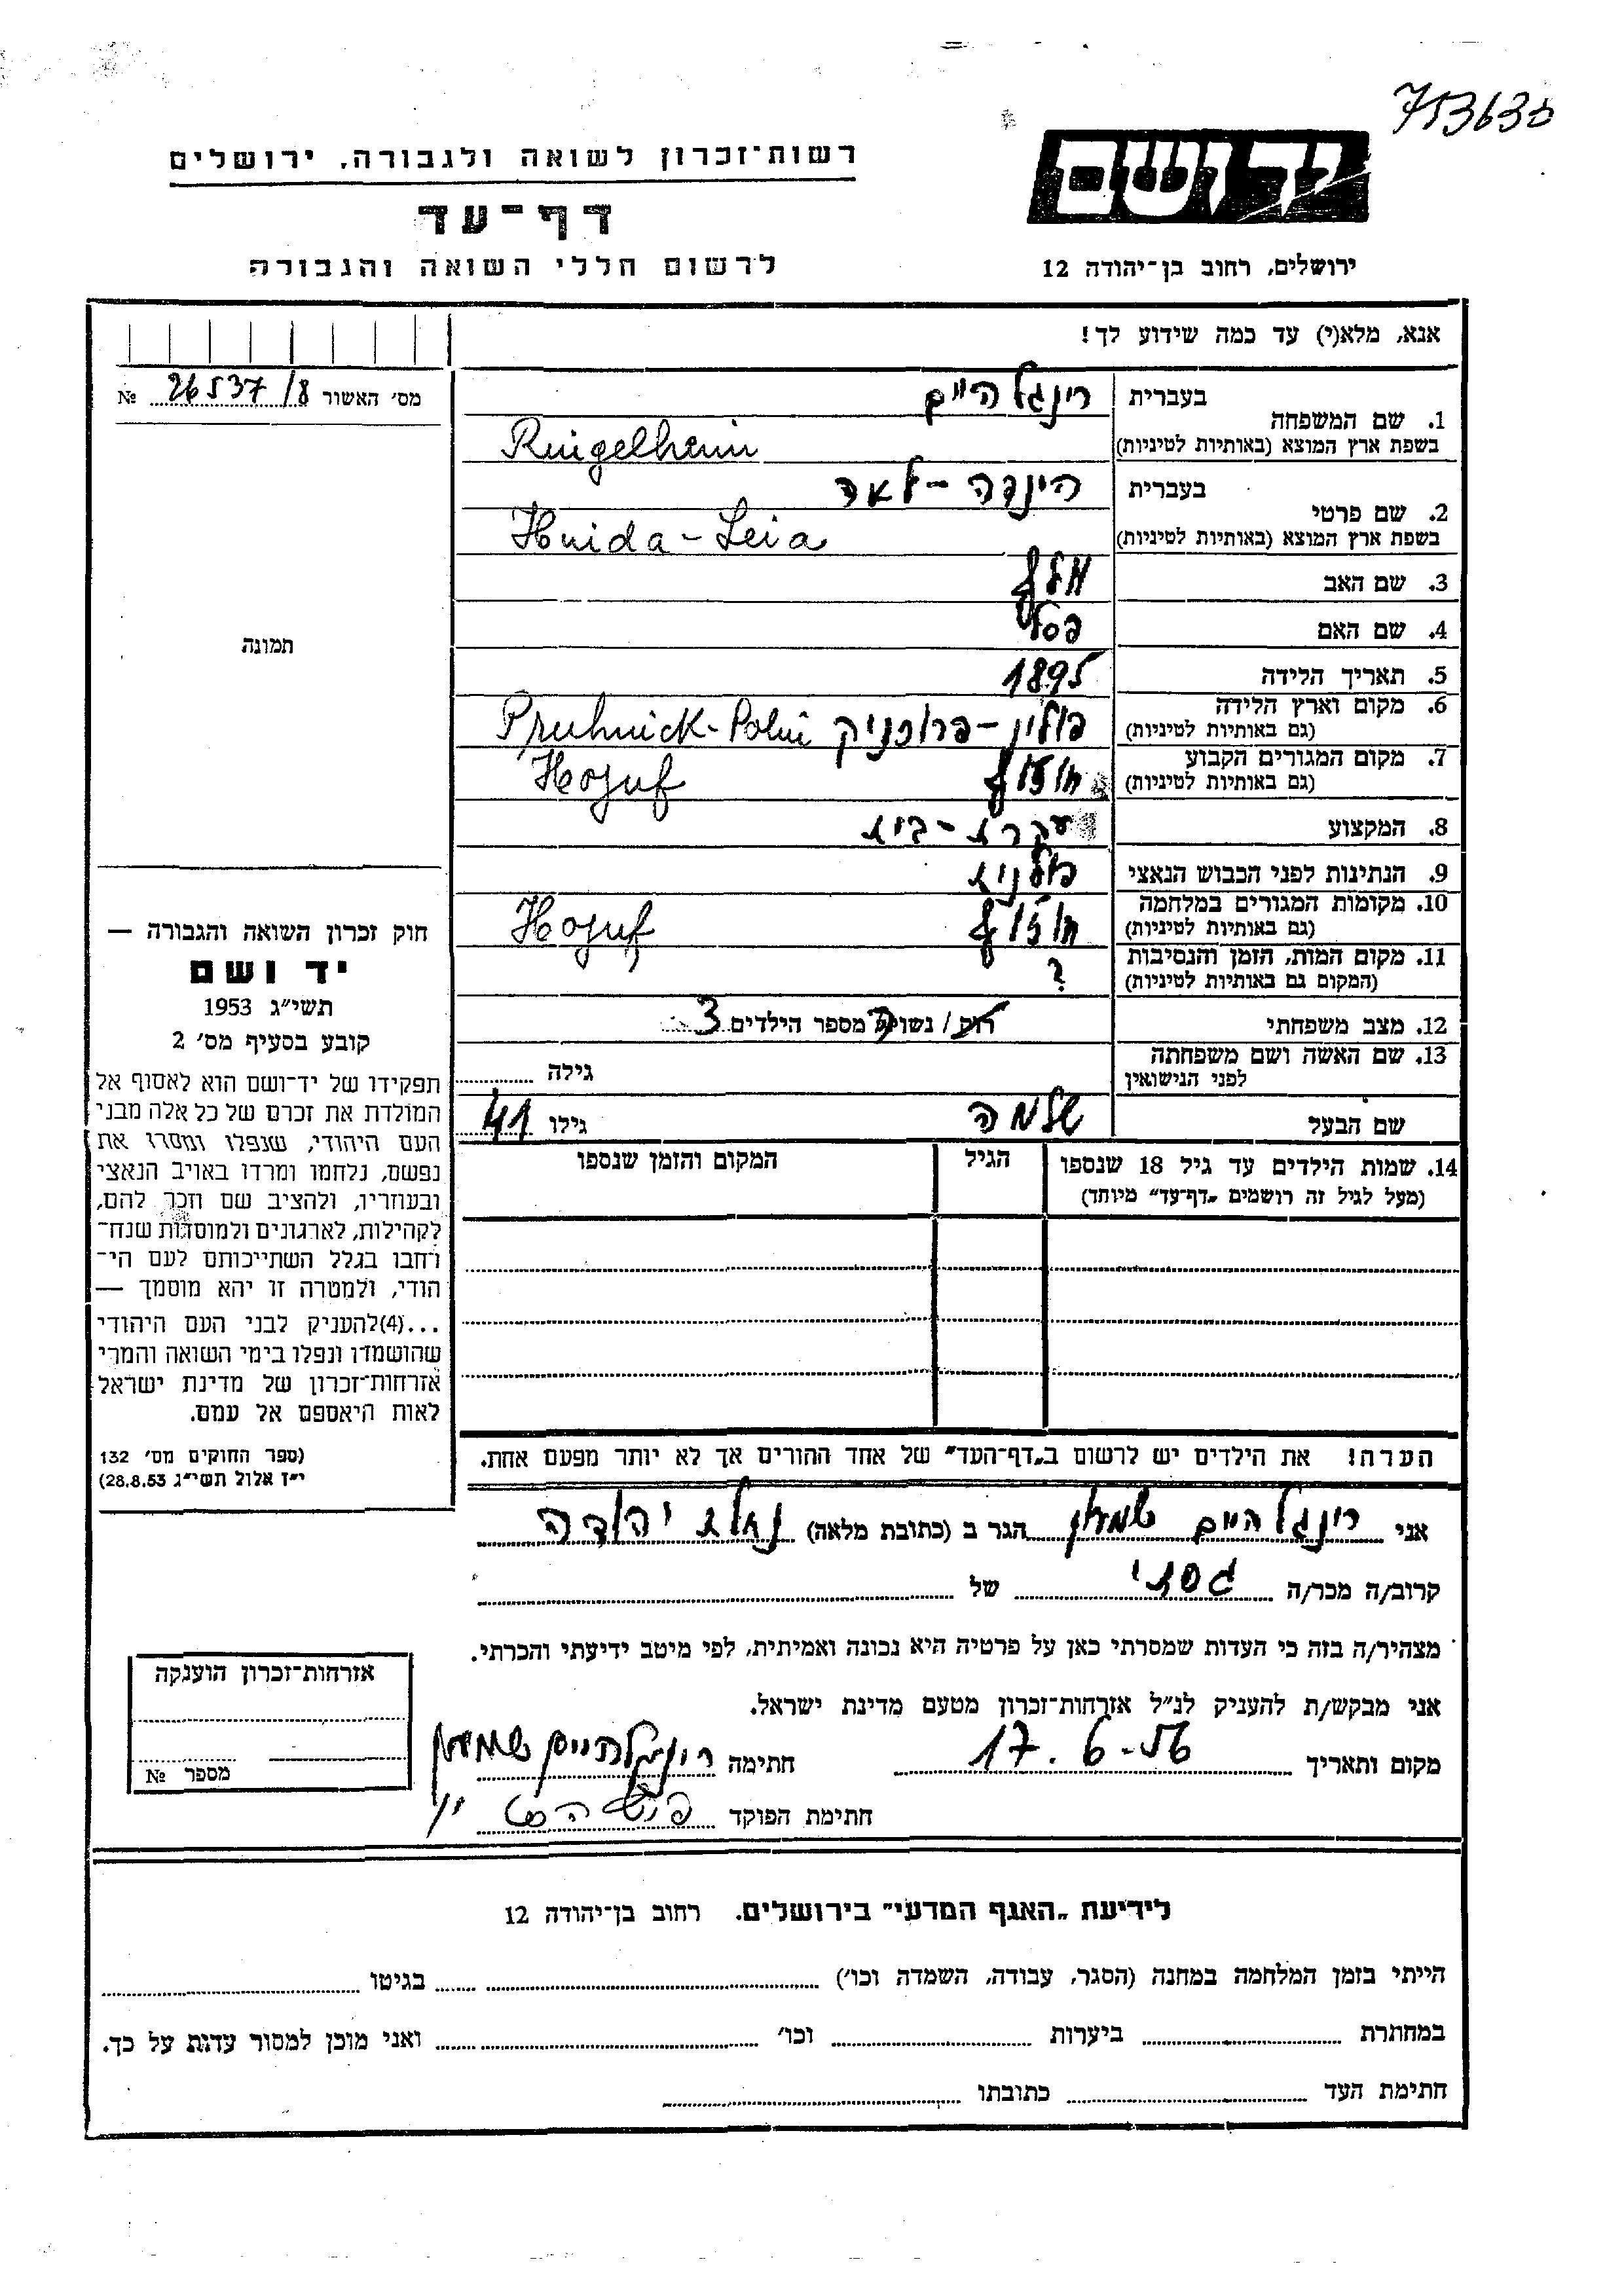 753630
יד ושם
רשות־זכרון לשואה ולגבורה, ירושלים
דף־עד
לרשום חללי השואה והגבורה
ירושלים, רחוב בן־יהודה 12
אנא, מלא(י) עד כמה שידוע לך!
מס׳ האשור 26537/8 №
תמונה
1. שם המשפחה בעברית רינגלהיים
בשפת ארץ המוצא (באותיות לטיניות) Ringelheim
2. שם פרטי בעברית הינדה-לאה
בשפת ארץ המוצא (באותיות לטיניות) Hinda-Leia
3. שם האב
4. שם האם פסל
5. תאריך הלידה 1895
6. מקום וארץ הלידה פולין-פרוכניק Pruhnick-Polin
(גם באותיות לטיניות)
7. מקום המגורים הקבוע חוזוף Hozuf
(גם באותיות לטיניות)
8. המקצוע עקרת-בית
9. הנתינות לפני הכבוש הנאצי פולנית
10. מקומות המגורים במלחמה חוזוף Hozuf
(גם באותיות לטיניות)
11. מקום המות, הזמן והנסיבות ?
(המקום גם באותיות לטיניות)
12. מצב משפחתי רוק / נשוי/ה מספר הילדים 3
13. שם האשה ושם משפחתה
לפני הנישואין
גילה
שם הבעל שלמה גילו 41
14. שמות הילדים עד גיל 18 שנספו
(מעל לגיל זה רושמים „דף־עד״ מיוחד)
הגיל
המקום והזמן שנספו
חוק זכרון השואה והגבורה —
יד ושם
תשי״ג 1953
קובע בסעיף מס׳ 2
תפקידו של יד־ושם הוא לאסוף אל
המולדת את זכרם של כל אלה מבני
העם היהודי, שנפלו ומסרו את
נפשם, נלחמו ומרדו באויב הנאצי
ובעוזריו, ולהציב שם וזכר להם,
לקהילות, לארגונים ולמוסדות שנח־
רחבו בגלל השתייכותם לעם הי־
הודי, ולמטרה זו יהא מוסמך —
...(4)להעניק לבני העם היהודי
שהושמדו ונפלו בימי השואה והמרי
אזרחות־זכרון של מדינת ישראל
לאות היאספם אל עמם.
(ספר החוקים מס׳ 132
י״ז אלול תשי״ג 28.8.53)
הערה! את הילדים יש לרשום ב„דף־העד״ של אחד ההורים אך לא יותר מפעם אחת.
אני רינגלהיים שמעון הגר ב (כתובת מלאה) נחלת יהודה
קרוב/ה מכר/ה גסתי של
מצהיר/ה בזה כי העדות שמסרתי כאן על פרטיה היא נכונה ואמיתית, לפי מיטב ידיעתי והכרתי.
אני מבקש/ת להעניק לנ״ל אזרחות־זכרון מטעם מדינת ישראל.
מקום ותאריך 17.6.56 חתימה רינגלהיים שמעון
חתימת הפוקד
אזרחות־זכרון הוענקה
מספר №
לידיעת „האגף המדעי״ בירושלים. רחוב בן־יהודה 12
הייתי בזמן המלחמה במחנה (הסגר, עבודה, השמדה וכו׳) בגיטו
במחתרת ביערות וכו׳ ואני מוכן למסור עדות על כך.
חתימת העד כתובתו